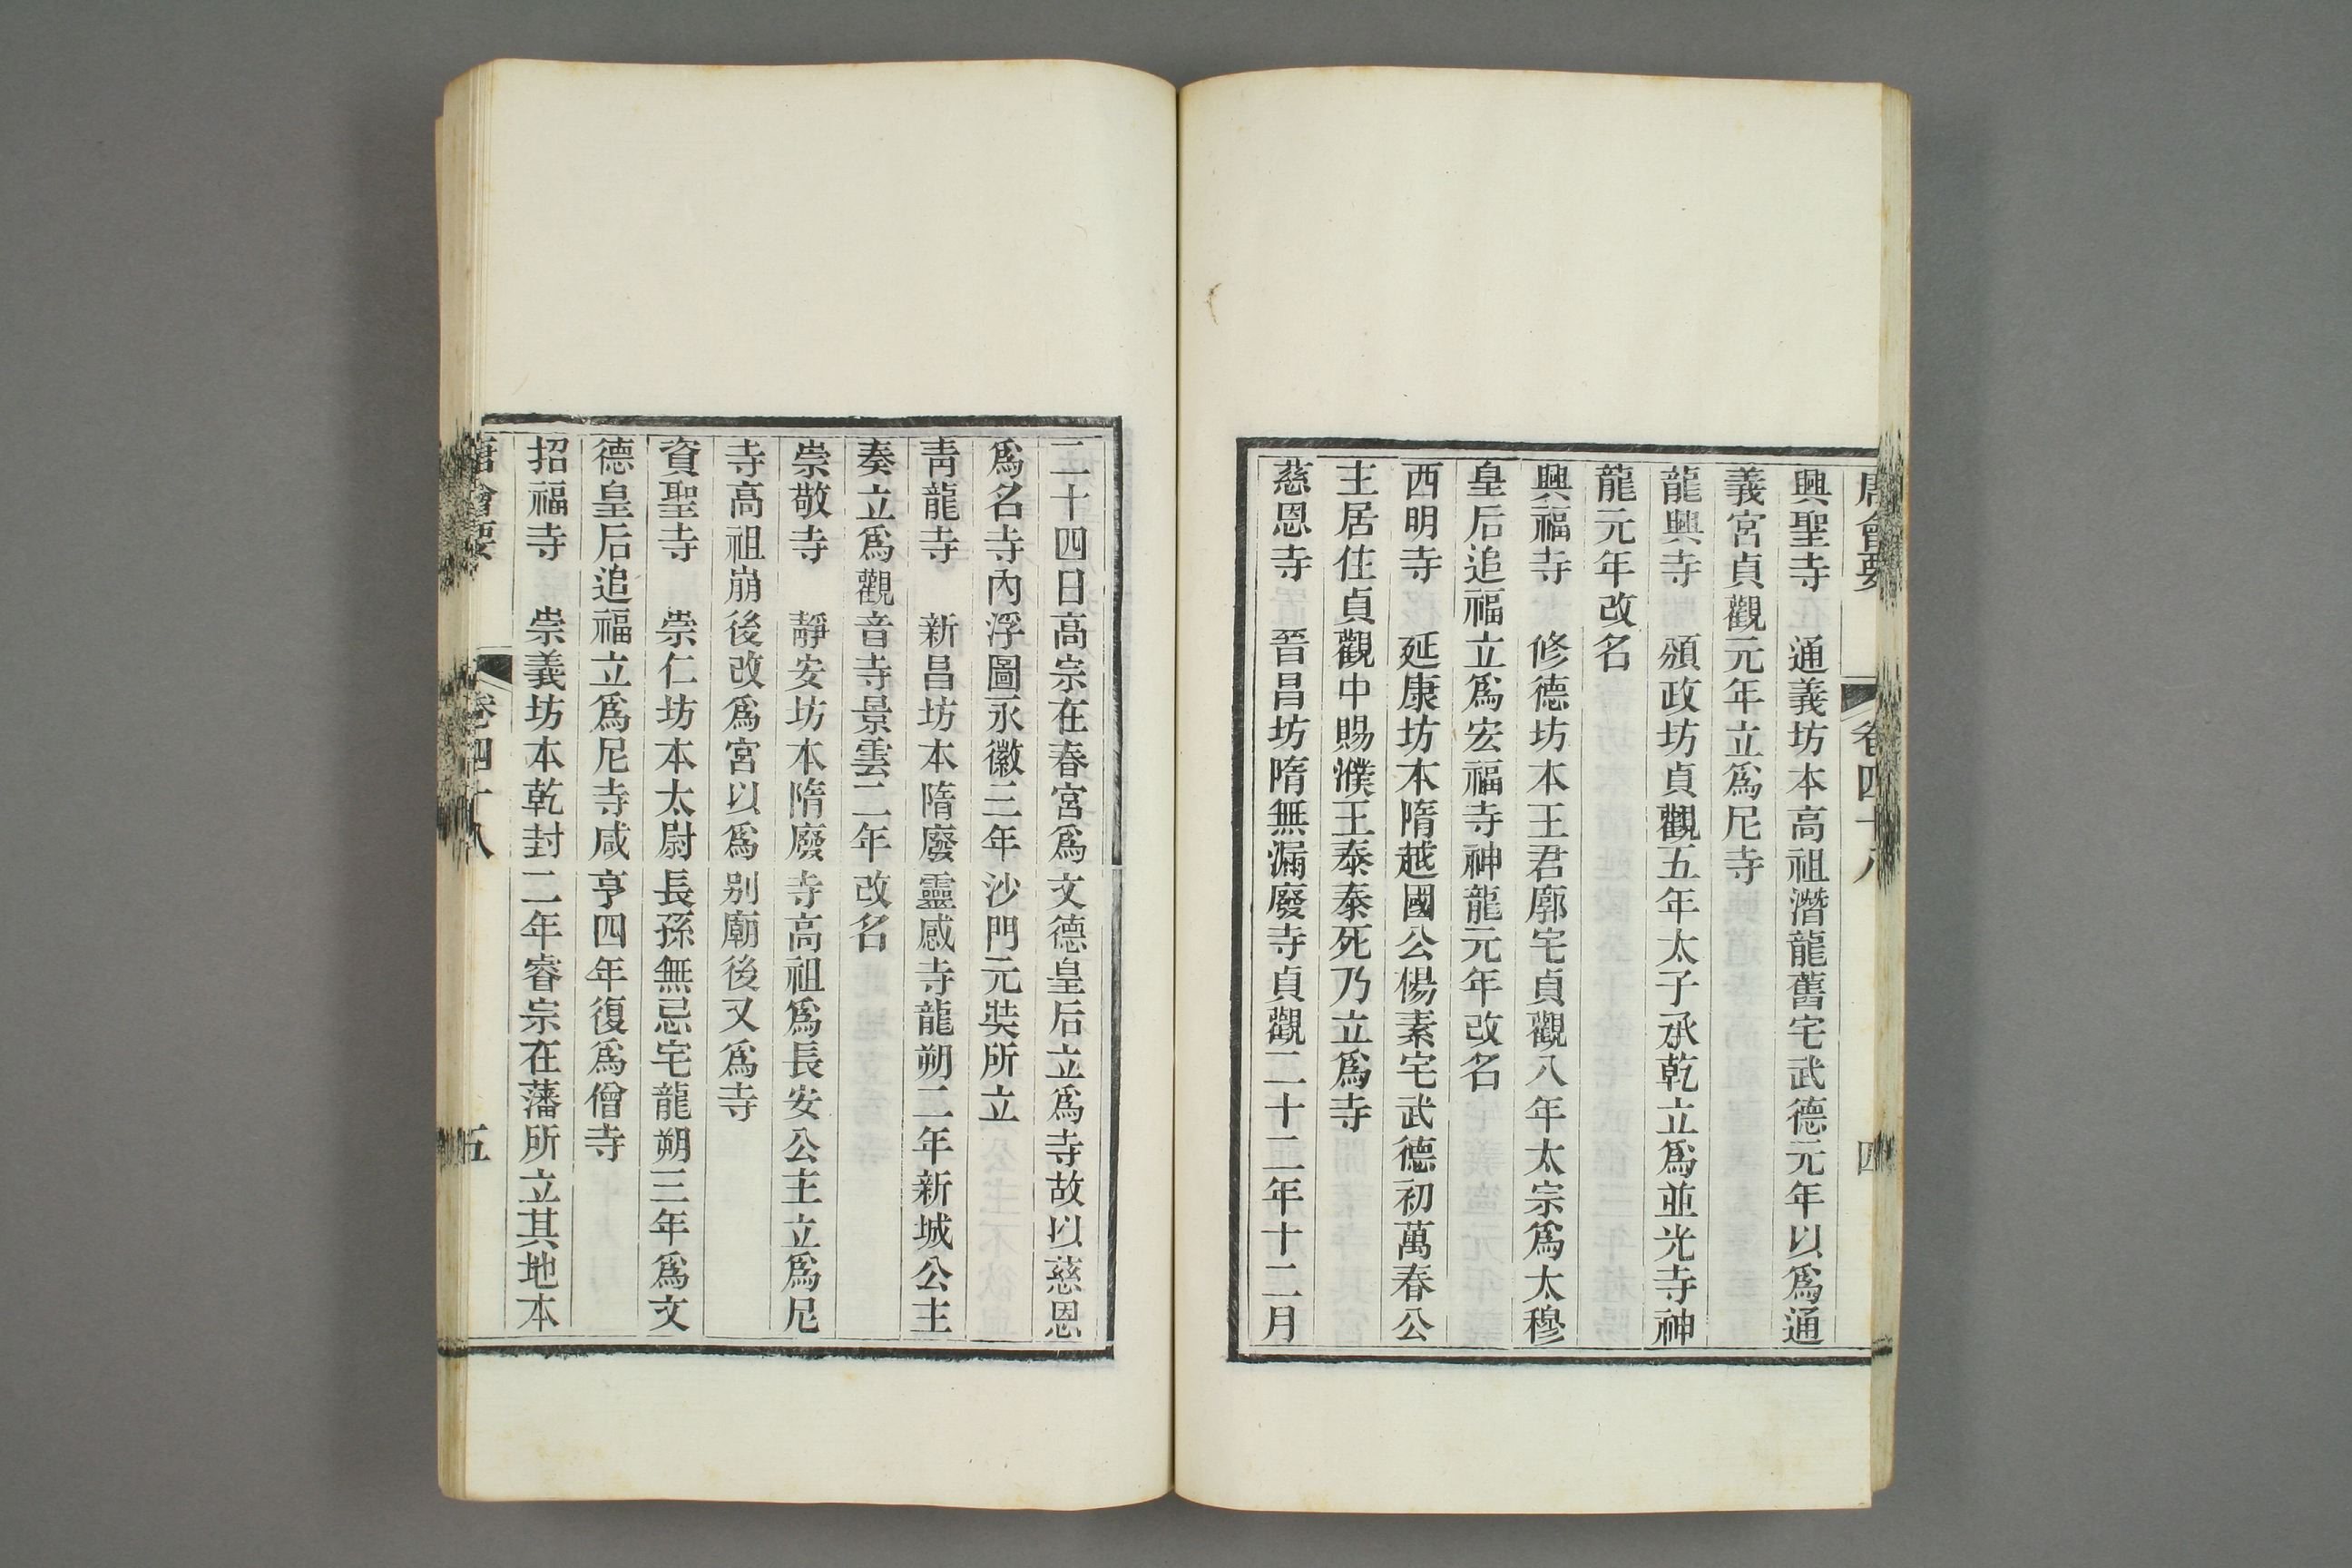 唐會要 卷四十八 四
興聖寺 通義坊本高祖潛龍舊宅武德元年以爲通
義宮貞觀元年立爲尼寺
龍興寺 頒政坊貞觀五年太子承乾立爲並光寺神
龍元年改名
興福寺 修德坊本王君廓宅貞觀八年太宗爲太穆
皇后追福立爲宏福寺神龍元年改名
西明寺 延康坊本隋越國公楊素宅武德初萬春公
主居住貞觀中賜濮王泰泰死乃立爲寺
慈恩寺 晉昌坊隋無漏廢寺貞觀二十二年十二月
二十四日高宗在春宮爲文德皇后立爲寺故以慈恩
爲名寺內浮圖永徽三年沙門元奘所立
靑龍寺 新昌坊本隋廢靈感寺龍朔二年新城公主
奏立爲觀音寺景雲二年改名
崇敬寺 靜安坊本隋廢寺高祖爲長安公主立爲尼
寺高祖崩後改爲宮以爲别廟後又爲寺
資聖寺 崇仁坊本太尉長孫無忌宅龍朔三年爲文
德皇后追福立爲尼寺咸亨四年復爲僧寺
招福寺 崇義坊本乾封二年睿宗在藩所立其地本
唐會要 卷四十八 五